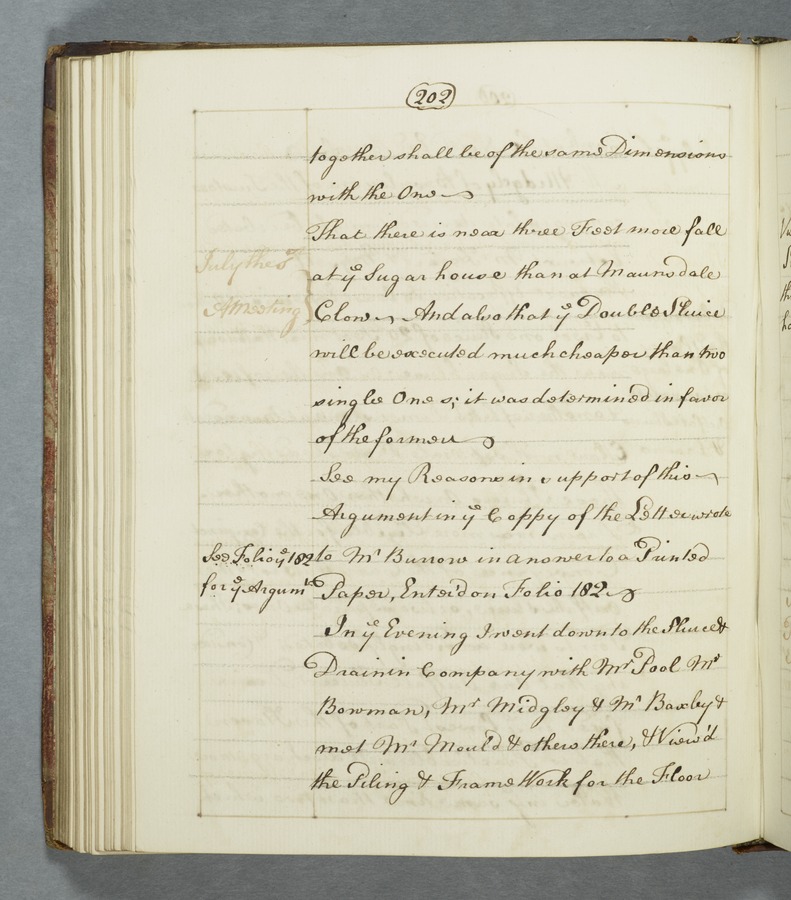 202
together shall be of the same Dimensions
with the One
That there is near three Feet more fall
July the
at ye Sugar house than at Maunsdale
A Meeting
Clow, And also that ye Double Sluice
will be executed much cheaper than two
single One s; it was determined in favor
of the former
See my Reasons in support of this
Argument in ye Coppy of the Letter wrote
See Folio ye 182
to Mr Burrow in answer to a Printed
for ye Argumts
Paper, Enter'd on Folio 182
In ye Evening I went down to the Sluce &
Drain in Company with Mr Pool Mr
Bowman, Mr Midgley & Mr Baxby &
met Mr Mould & others there, & View'd
the Piling & Frame Work for the Floor